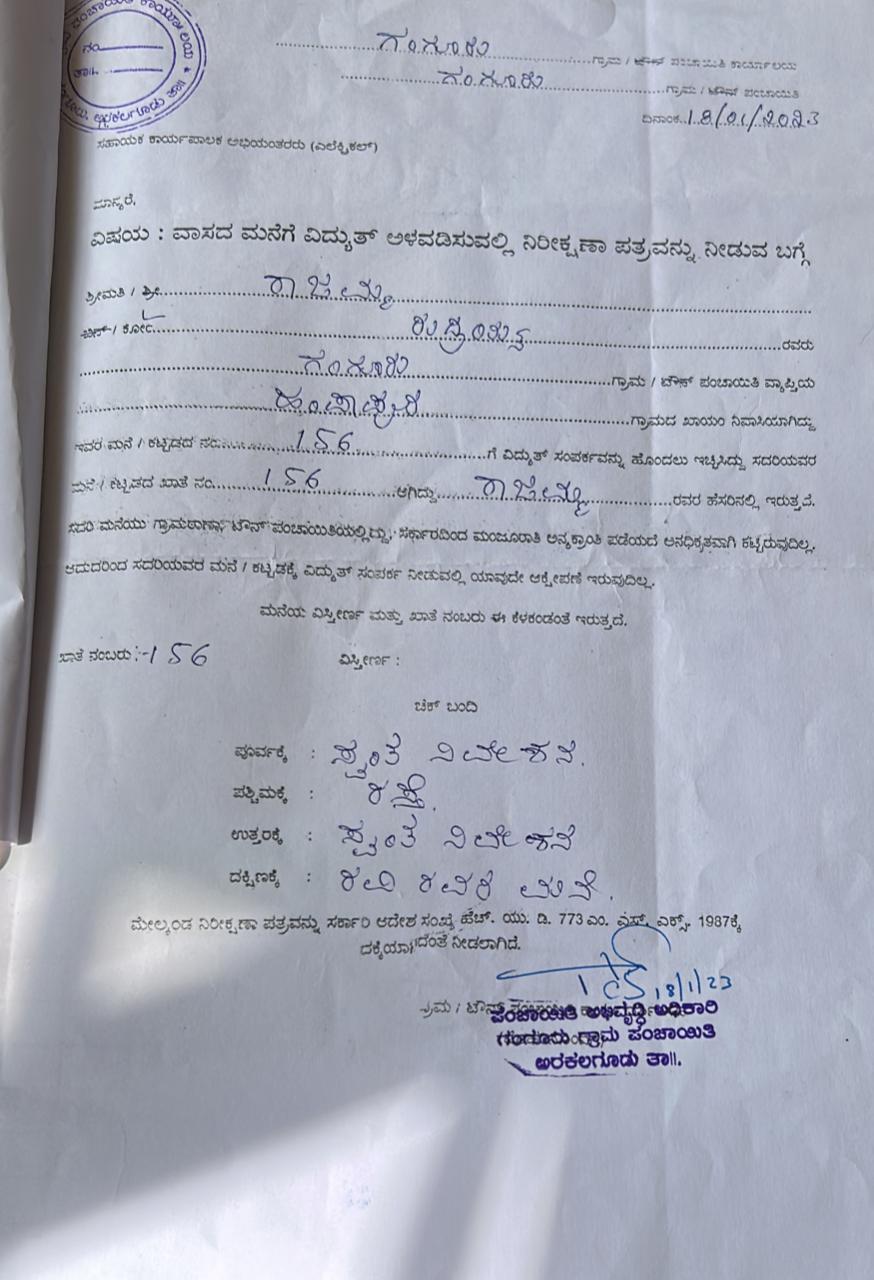 ಪಂಚಾಯಿತಿ ಕಾರ್ಯಾಲಯ
ನಂ
ತಾ||
ಅರಕಲಗೂಡು ತಾ||
ಗಂಗೂರು ಗ್ರಾಮ / ಟೌನ್ ಪಂಚಾಯಿತಿ ಕಾರ್ಯಾಲಯ
ಗಂಗೂರು ಗ್ರಾಮ / ಟೌನ್ ಪಂಚಾಯಿತಿ
ದಿನಾಂಕ 18/01/2023
ಸಹಾಯಕ ಕಾರ್ಯಪಾಲಕ ಅಭಿಯಂತರರು (ಎಲೆಕ್ಟ್ರಿಕಲ್)
ಮಾನ್ಯರೆ,
ವಿಷಯ : ವಾಸದ ಮನೆಗೆ ವಿದ್ಯುತ್ ಅಳವಡಿಸುವಲ್ಲಿ ನಿರೀಕ್ಷಣಾ ಪತ್ರವನ್ನು ನೀಡುವ ಬಗ್ಗೆ
ಶ್ರೀಮತಿ / ಶ್ರೀ ರಾಜಮ್ಮ
ಬಿನ್ / ಕೋಂ ರುದ್ರಯ್ಯ ರವರು
ಗಂಗೂರು ಗ್ರಾಮ / ಟೌನ್ ಪಂಚಾಯಿತಿ ವ್ಯಾಪ್ತಿಯ
ಹಂಪಾಪುರ ಗ್ರಾಮದ ಖಾಯಂ ನಿವಾಸಿಯಾಗಿದ್ದು
ಇವರ ಮನೆ / ಕಟ್ಟಡದ ನಂ. 156 ಗೆ ವಿದ್ಯುತ್ ಸಂಪರ್ಕವನ್ನು ಹೊಂದಲು ಇಚ್ಛಿಸಿದ್ದು ಸದರಿಯವರ
ಮನೆ / ಕಟ್ಟಡದ ಖಾತೆ ನಂ. 156 ಆಗಿದ್ದು ರಾಜಮ್ಮ ರವರ ಹೆಸರಿನಲ್ಲಿ ಇರುತ್ತದೆ.
ಸದರಿ ಮನೆಯು ಗ್ರಾಮಠಾಣಾ, ಟೌನ್ ಪಂಚಾಯಿತಿಯಲ್ಲಿದ್ದು, ಸರ್ಕಾರದಿಂದ ಮಂಜೂರಾತಿ ಅನ್ಯಕ್ರಾಂತಿ ಪಡೆಯದೆ ಅನಧಿಕೃತವಾಗಿ ಕಟ್ಟಿರುವುದಿಲ್ಲ.
ಆದುದರಿಂದ ಸದರಿಯವರ ಮನೆ / ಕಟ್ಟಡಕ್ಕೆ ವಿದ್ಯುತ್ ಸಂಪರ್ಕ ನೀಡುವಲ್ಲಿ ಯಾವುದೇ ಆಕ್ಷೇಪಣೆ ಇರುವುದಿಲ್ಲ.
ಮನೆಯ ವಿಸ್ತೀರ್ಣ ಮತ್ತು ಖಾತೆ ನಂಬರು ಈ ಕೆಳಕಂಡಂತೆ ಇರುತ್ತದೆ.
ಖಾತೆ ನಂಬರು :- 156 ವಿಸ್ತೀರ್ಣ :
ಚೆಕ್ ಬಂದಿ
ಪೂರ್ವಕ್ಕೆ : ಸ್ವಂತ ನಿವೇಶನ.
ಪಶ್ಚಿಮಕ್ಕೆ : ರಸ್ತೆ.
ಉತ್ತರಕ್ಕೆ : ಸ್ವಂತ ನಿವೇಶನ
ದಕ್ಷಿಣಕ್ಕೆ : ರವಿ ರವರ ಮನೆ.
ಮೇಲ್ಕಂಡ ನಿರೀಕ್ಷಣಾ ಪತ್ರವನ್ನು ಸರ್ಕಾರಿ ಆದೇಶ ಸಂಖ್ಯೆ ಹೆಚ್. ಯು. ಡಿ. 773 ಎಂ. ಎನ್. ಎಕ್ಸ್. 1987ಕ್ಕೆ
ದಂತೆ ನೀಡಲಾಗಿದೆ.
18/1/23
ಟೌನ್
ಪಂಚಾಯಿತಿ ಅಭಿವೃದ್ಧಿ ಅಧಿಕಾರಿ
ಗಂಗೂರು ಗ್ರಾಮ ಪಂಚಾಯಿತಿ
ಅರಕಲಗೂಡು ತಾ||.